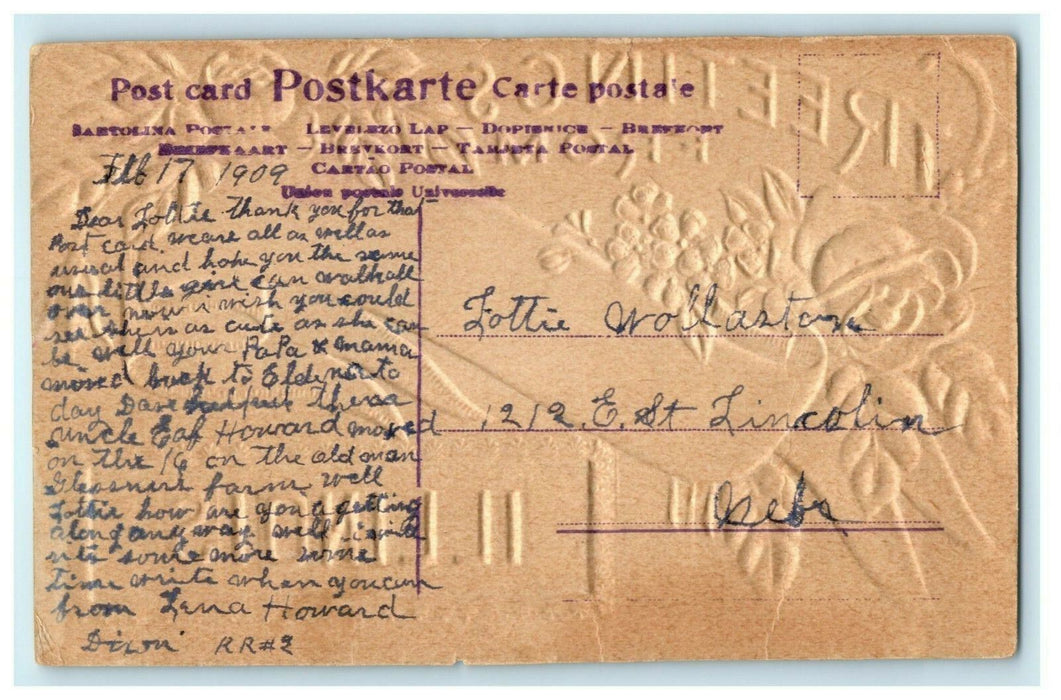 Post card Postkarte Carte postale
CARTOLINA POSTALE LEVELEZO LAP – DOPISNICE – BREFKORT
BRIEFKAART – BREVKORT – TARJETA POSTAL
CARTÃO POSTAL
Union postale Universelle
Feb 17 1909
Dear Lottie thank you for that
Post card. we are all as well as
usual and hope you the same
our little girl can walk all
over now i wish you could
see her as cute as she can
be well your PaPa & mama
moved back to Eldena to
day Dave
uncle Howard moved
on the 16 on the old man
farm well
Lottie how are you a getting
along any way well i will
write some more some
time write when you can
from Lena Howard
Dixon RR#2
Lottie Wollaston
1212. E. St Lincolin
Nebr
GREETINGS
FROM
ILL